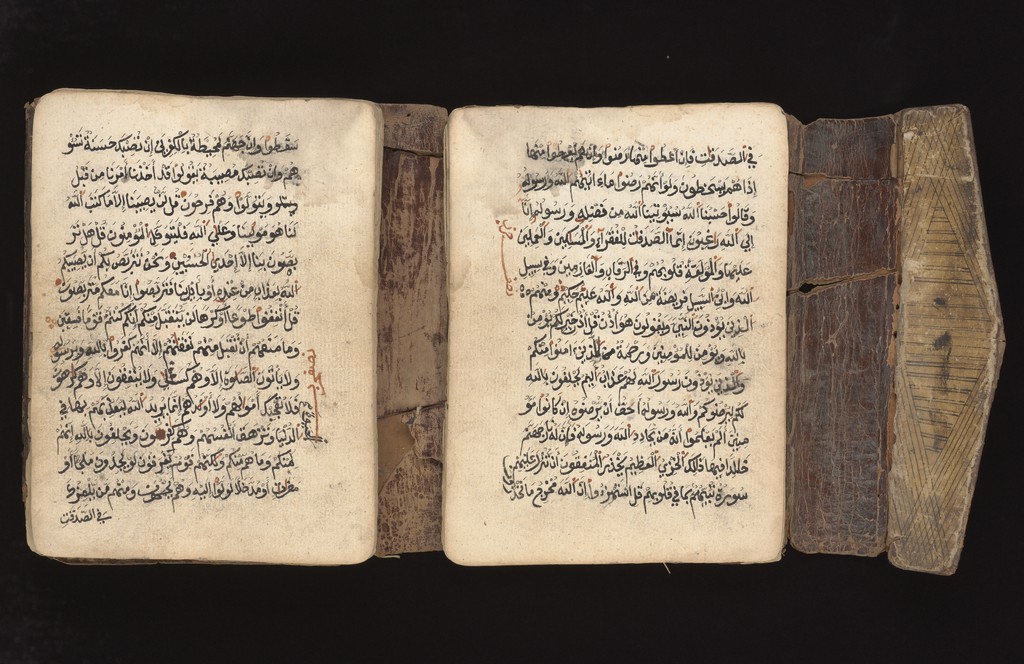 سقطوا وان جهنم لمحيطة بالكفرين ان تصبك حسنة تسؤ
هم وان تصبك مصيبة يقولوا قد اخذنا امرنا من قبل
ويتولوا وهم فرحون قل لن يصيبنا الا ما كتب الله
لنا هو مولينا وعلى الله فليتوكل المؤمنون قل هل تر
بصون بنا الا احدى الحسنيين ونحن نتربص بكم ان يصيبكم
الله بعذاب من عنده او بايدينا فتربصوا انا معكم متربصون
قل انفقوا طوعا او كرها لن يتقبل منكم انكم كنتم قوما فسقين
وما منعهم ان تقبل منهم نفقتهم الا انهم كفروا بالله وبرسوله
ولا ياتون الصلوة الا وهم كسلى ولا ينفقون الا وهم كرهو
ن فلا تعجبك اموالهم ولا اولدهم انما يريد الله ليعذبهم بها في
الدنيا وتزهق انفسهم وهم كفرون ويحلفون بالله انهم
لمنكم وما هم منكم ولكنهم قوم يفرقون لو يجدون ملجا او
مغرت او مدخلا لولوا اليه وهم يجمحون ومنهم من يلمزك
في الصدقت
نصف حزب
في الصدقت فان اعطوا منها رضوا وان لم يعطوا منها
اذا هم يسخطون ولو انهم رضوا ما اتيهم الله ورسوله
وقالوا حسبنا الله سيوتينا الله من فضله ورسوله انا
الى الله رغبون انما الصدقت للفقراء والمسكين والعملين
عليها والمولفة قلوبهم وفي الرقاب والغرمين وفي سبيل
الله وابن السبيل فريضة من الله والله عليم حكيم ومنهم
الذين يوذون النبي ويقولون هو اذن قل اذن خير لكم يومن
بالله ويومن للمومنين ورحمة للذين امنوا منكم
والذين يوذون رسول الله لهم عذاب اليم يحلفون بالله
لكم ليرضوكم والله ورسوله احق ان يرضوه ان كانوا مو
منين الم يعلموا انه من يحادد الله ورسوله فان له نار جهنم
خلدا فيها ذلك الخزي العظيم يحذر المنفقون ان تنزل عليهم
سورة تنبيهم بما في قلوبهم قل استهزءوا ان الله مخرج ما تحذرون